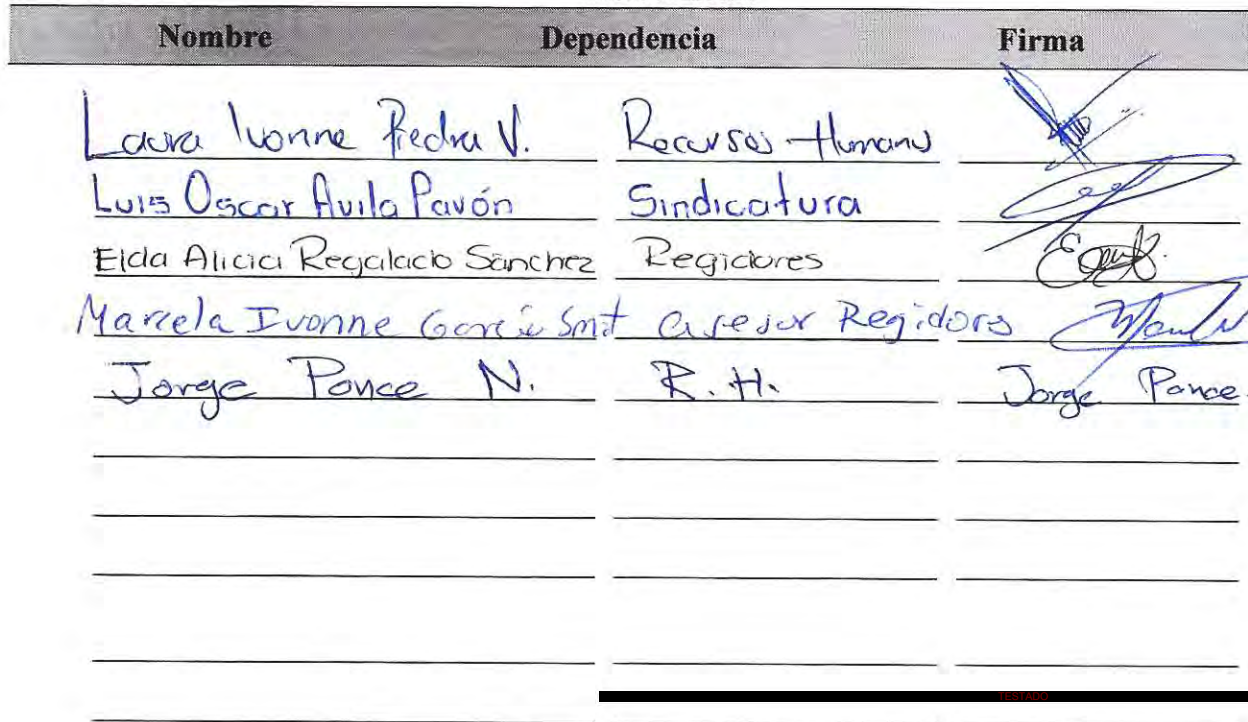 Nombre Dependencia Firma
Laura Ivonne Piedra V. Recursos Humanos
Luis Oscar Avila Pavón Sindicatura
Elda Alicia Regalado Sánchez Regidores
Marcela Ivonne García Smit asesor Regidors
Jorge Ponce N. R.H. Jorge Ponce.
TESTADO